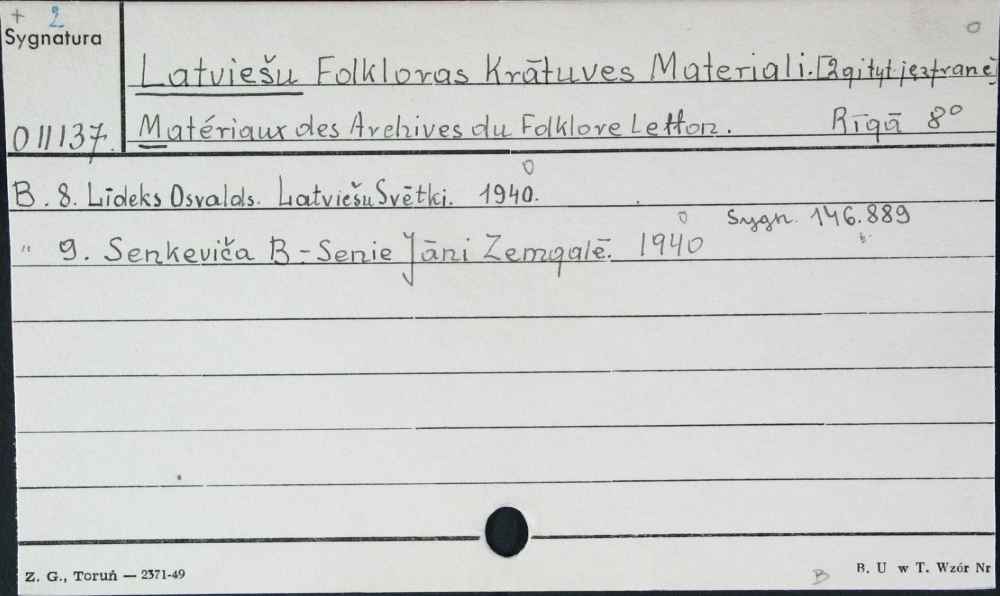 + 2
Sygnatura
Latviešu Folkloras Krātuves Materiali. [2gi tyt. jęz franc]
011137. Matériaux des Archives du Folklore Letton. Rīgā 8°
B. 8. Līdeks Osvalds. Latviešu Svētki. 1940.
Sygn. 146.889
" 9. Senkeviča B - Senie Jāni Zemgalē. 1940
Z. G., Toruń — 2371-49
B
B. U w T. Wzór Nr